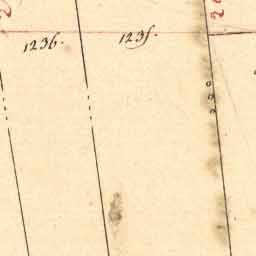 1236.
1235.